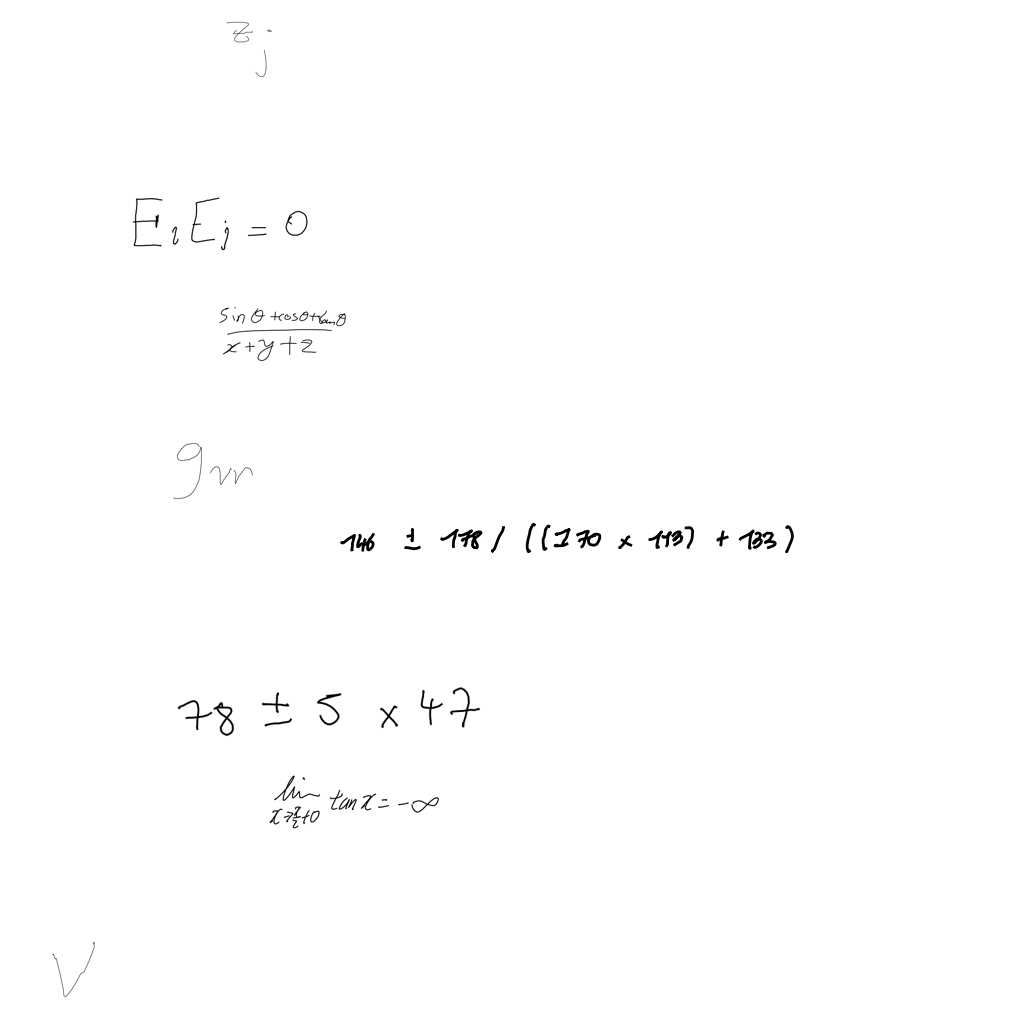 z_j
E_i E_j = 0
\frac{\sin \theta + \cos \theta + \tan \theta}{x + y + z}
g_{rr}
146 ± 178 / ((170 × 113) + 133)
78 ± 5 × 47
\lim_{x \to \frac{\pi}{2} + 0} \tan x = -\infty
V